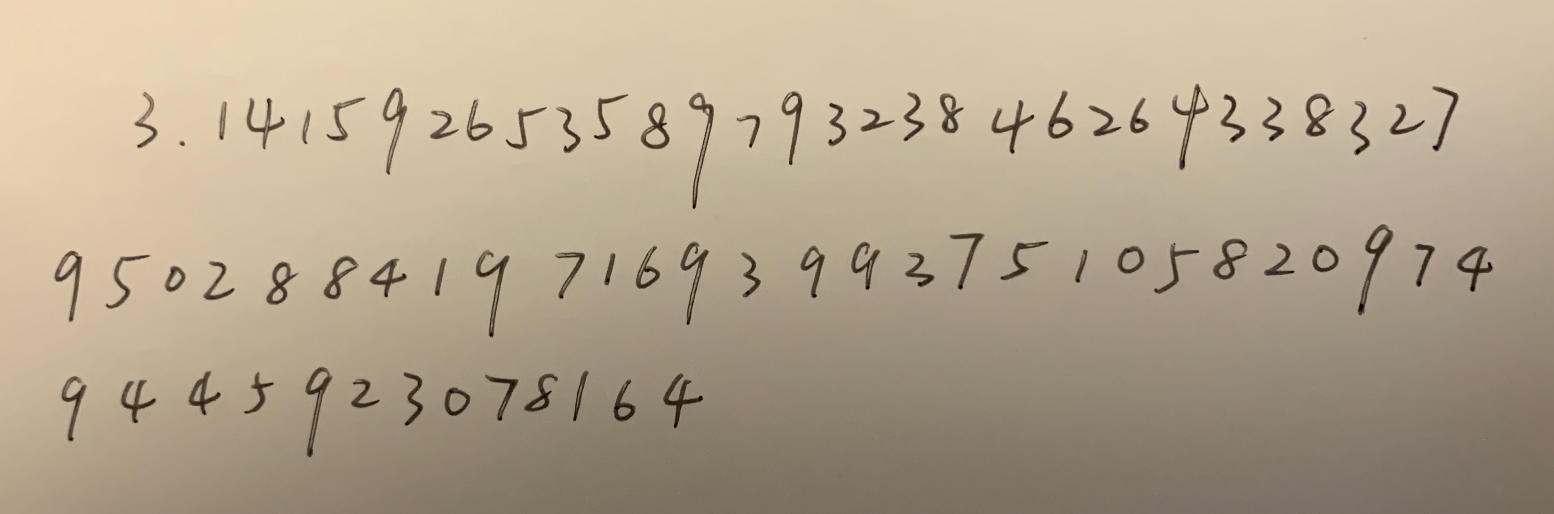 3.1415926535897932384626433​8327
9502884197169399375105820974
9445923078164